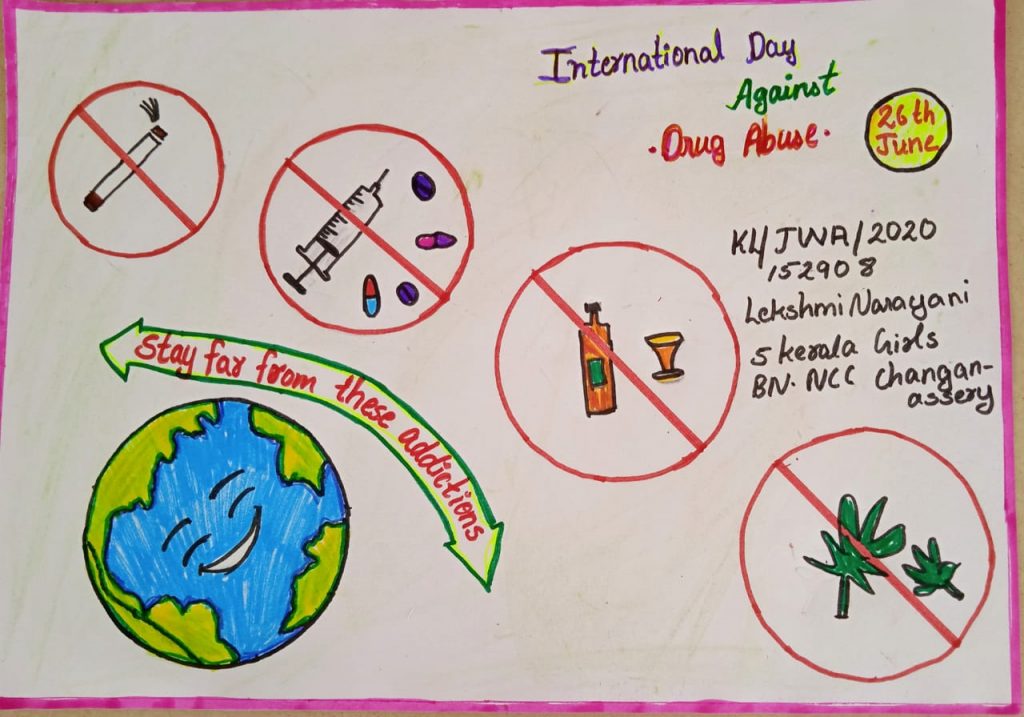 International Day
Against
·Drug Abuse·
26th
June
KL/JWA/2020
152908
Lekshmi Narayani
5 kerala Girls
BN. NCC Changan-
assery
Stay far from these addictions